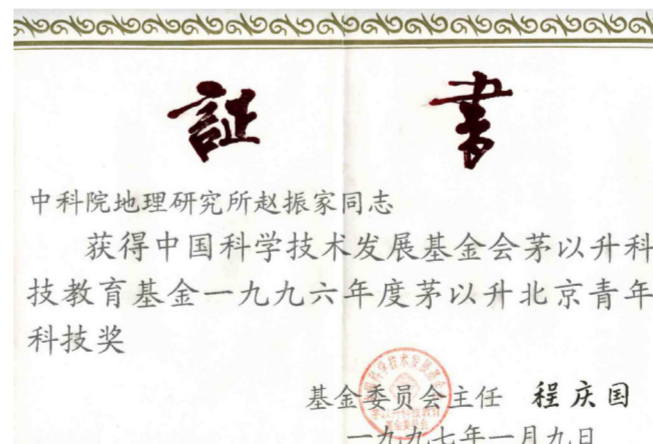 証 書
中科院地理研究所赵振家同志
获得中国科学技术发展基金会茅以升科
技教育基金一九九六年度茅以升北京青年
科技奖
基金委员会主任 程庆国
一九九七年一月九日